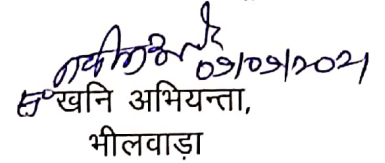 09/09/2021
स० खनि अभियन्ता,
भीलवाड़ा